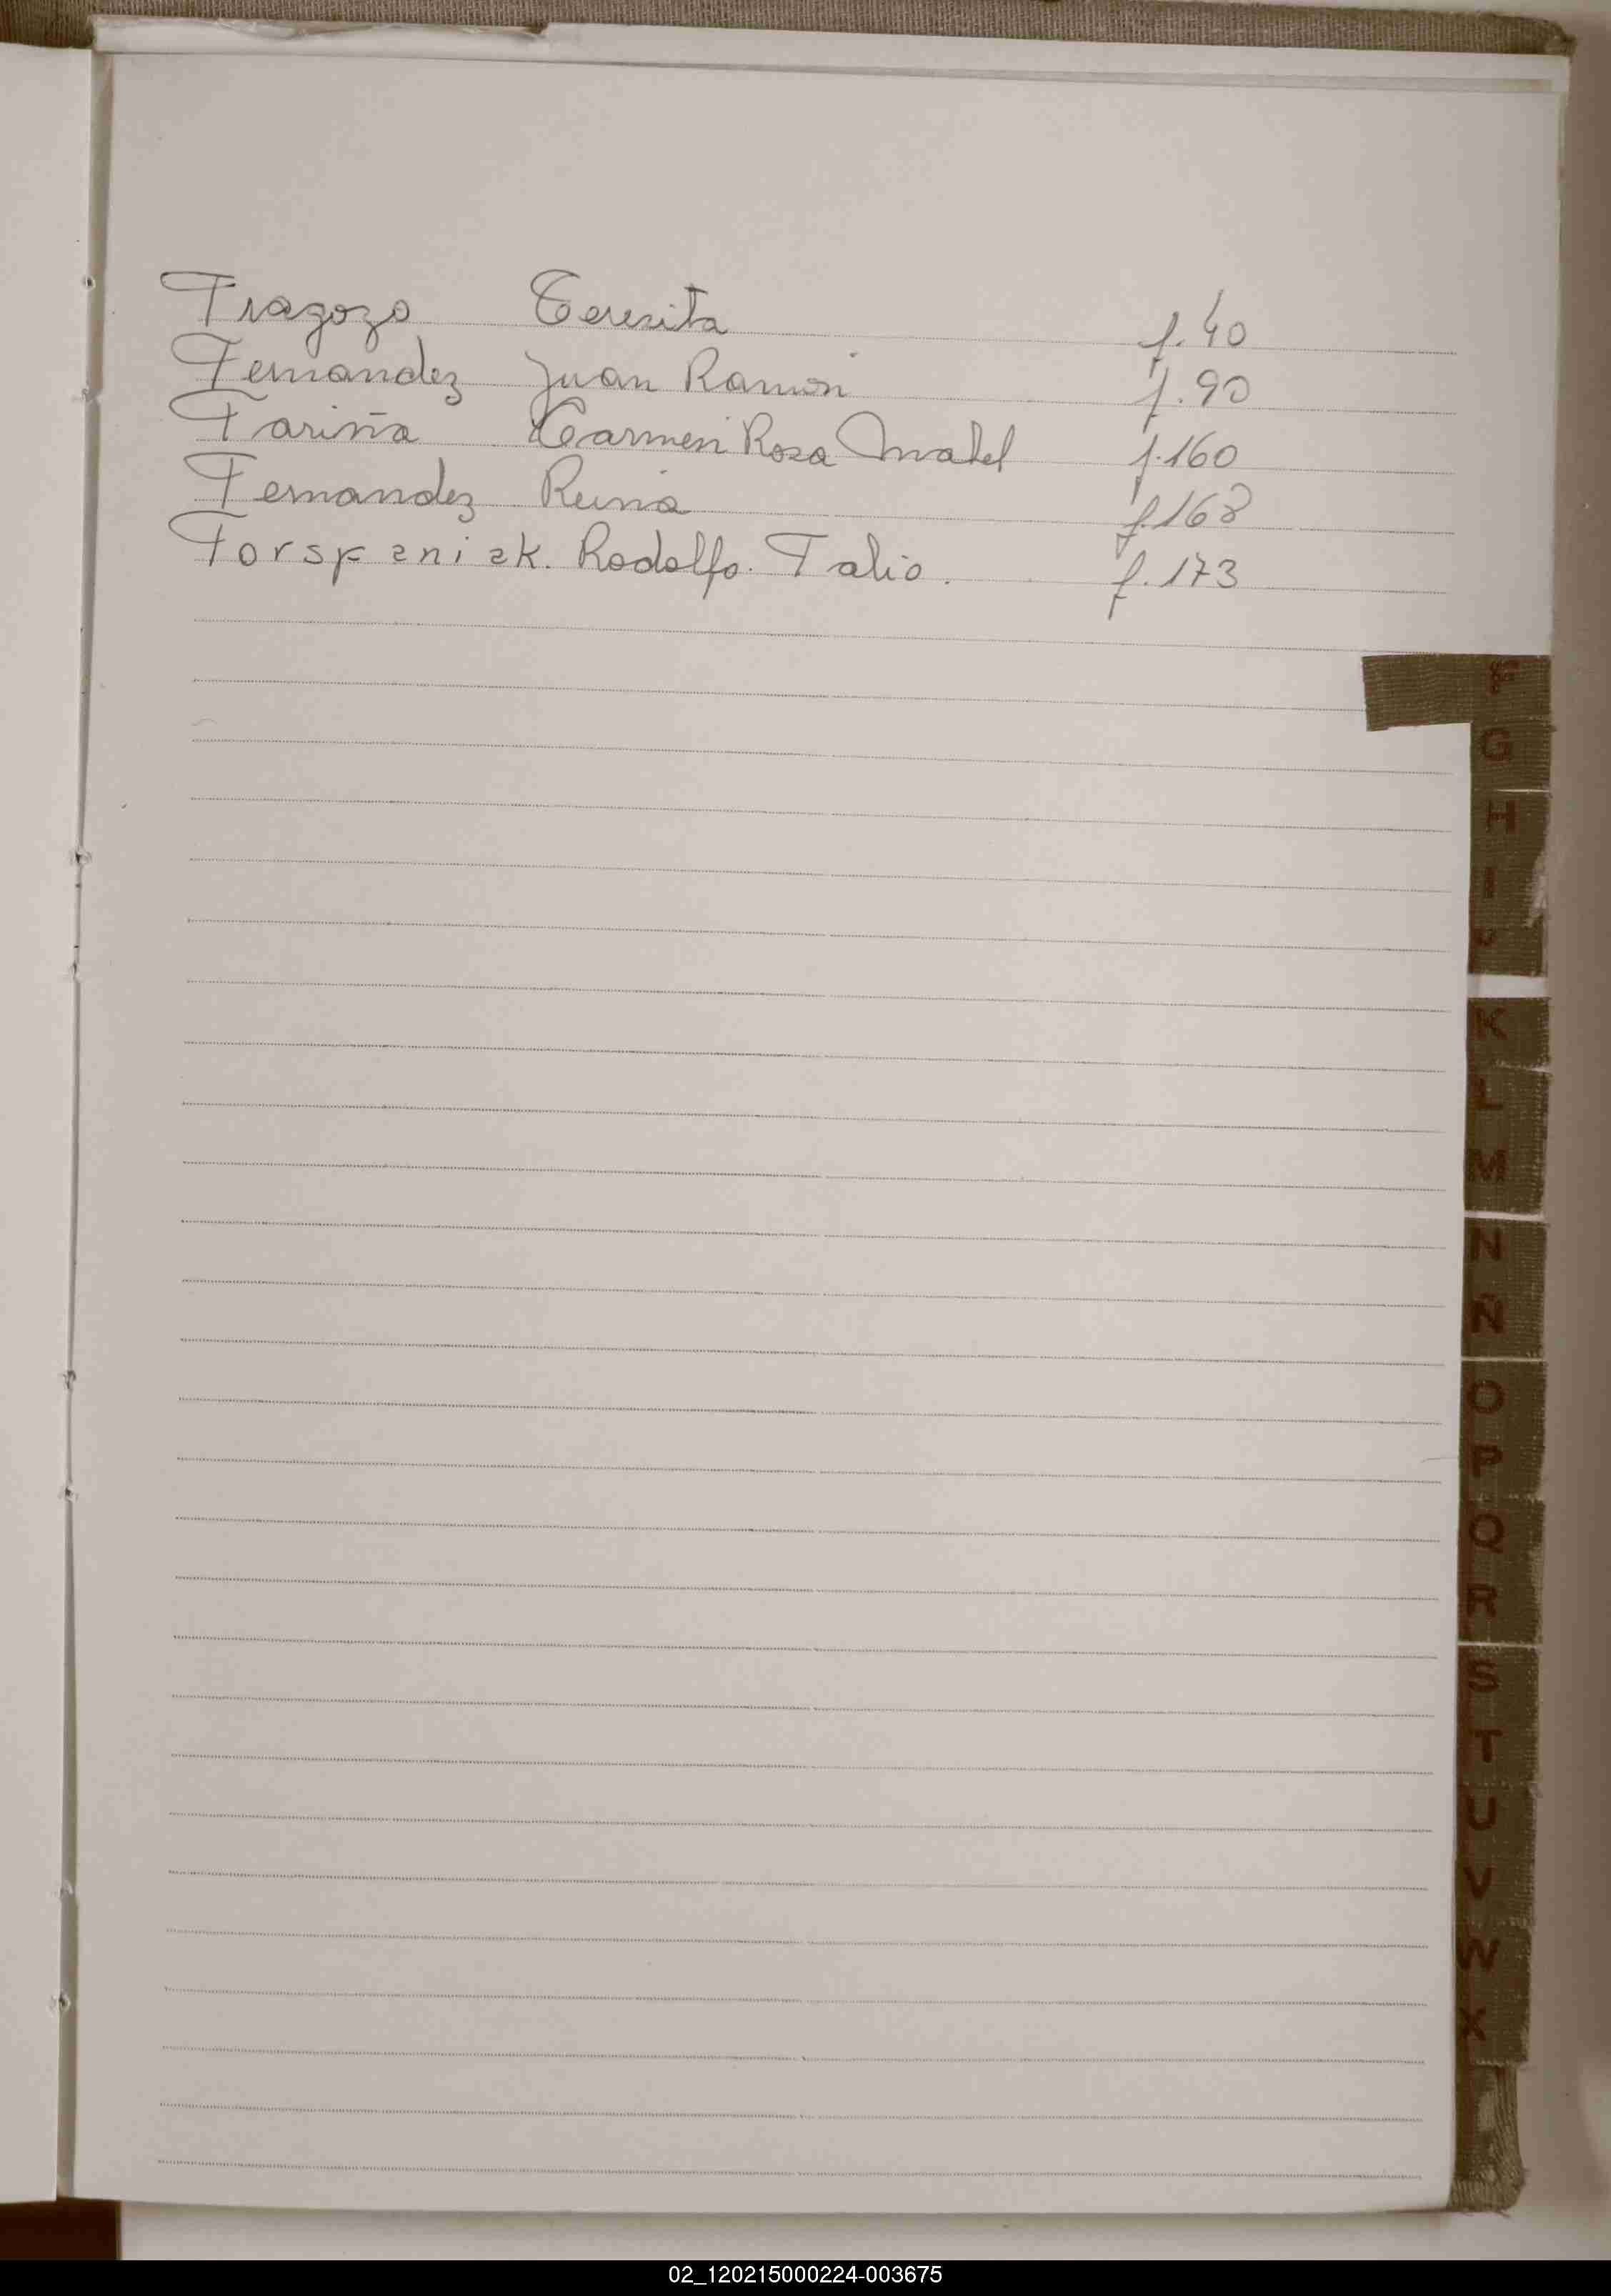 Fragozo Teresita f. 40
Fernandez Juan Ramón f. 90
Fariña Carmen Rosa Mabel f. 160
Fernandez Reina f. 168
Rodolfo. Falio. f. 173
F
G
H
I
J
K
L
M
N
Ñ
O
P
Q
R
S
T
U
V
W
X
02_120215000224-003675